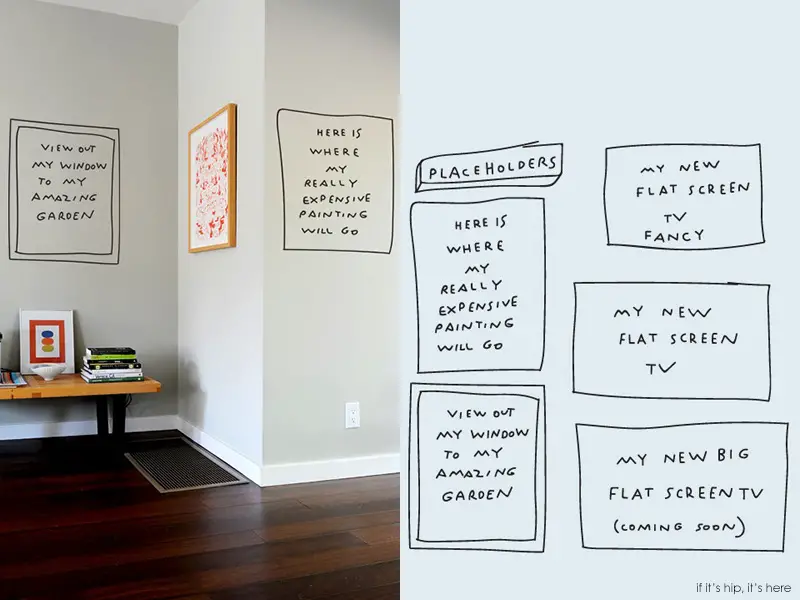 VIEW OUT
MY WINDOW
TO MY
AMAZING
GARDEN
HERE IS
WHERE
MY
REALLY
EXPENSIVE
PAINTING
WILL GO
PLACEHOLDERS
HERE IS
WHERE
MY
REALLY
EXPENSIVE
PAINTING
WILL GO
VIEW OUT
MY WINDOW
TO MY
AMAZING
GARDEN
MY NEW
FLAT SCREEN
TV
FANCY
MY NEW
FLAT SCREEN
TV
MY NEW BIG
FLAT SCREEN TV
(COMING SOON)
if it's hip, it's here